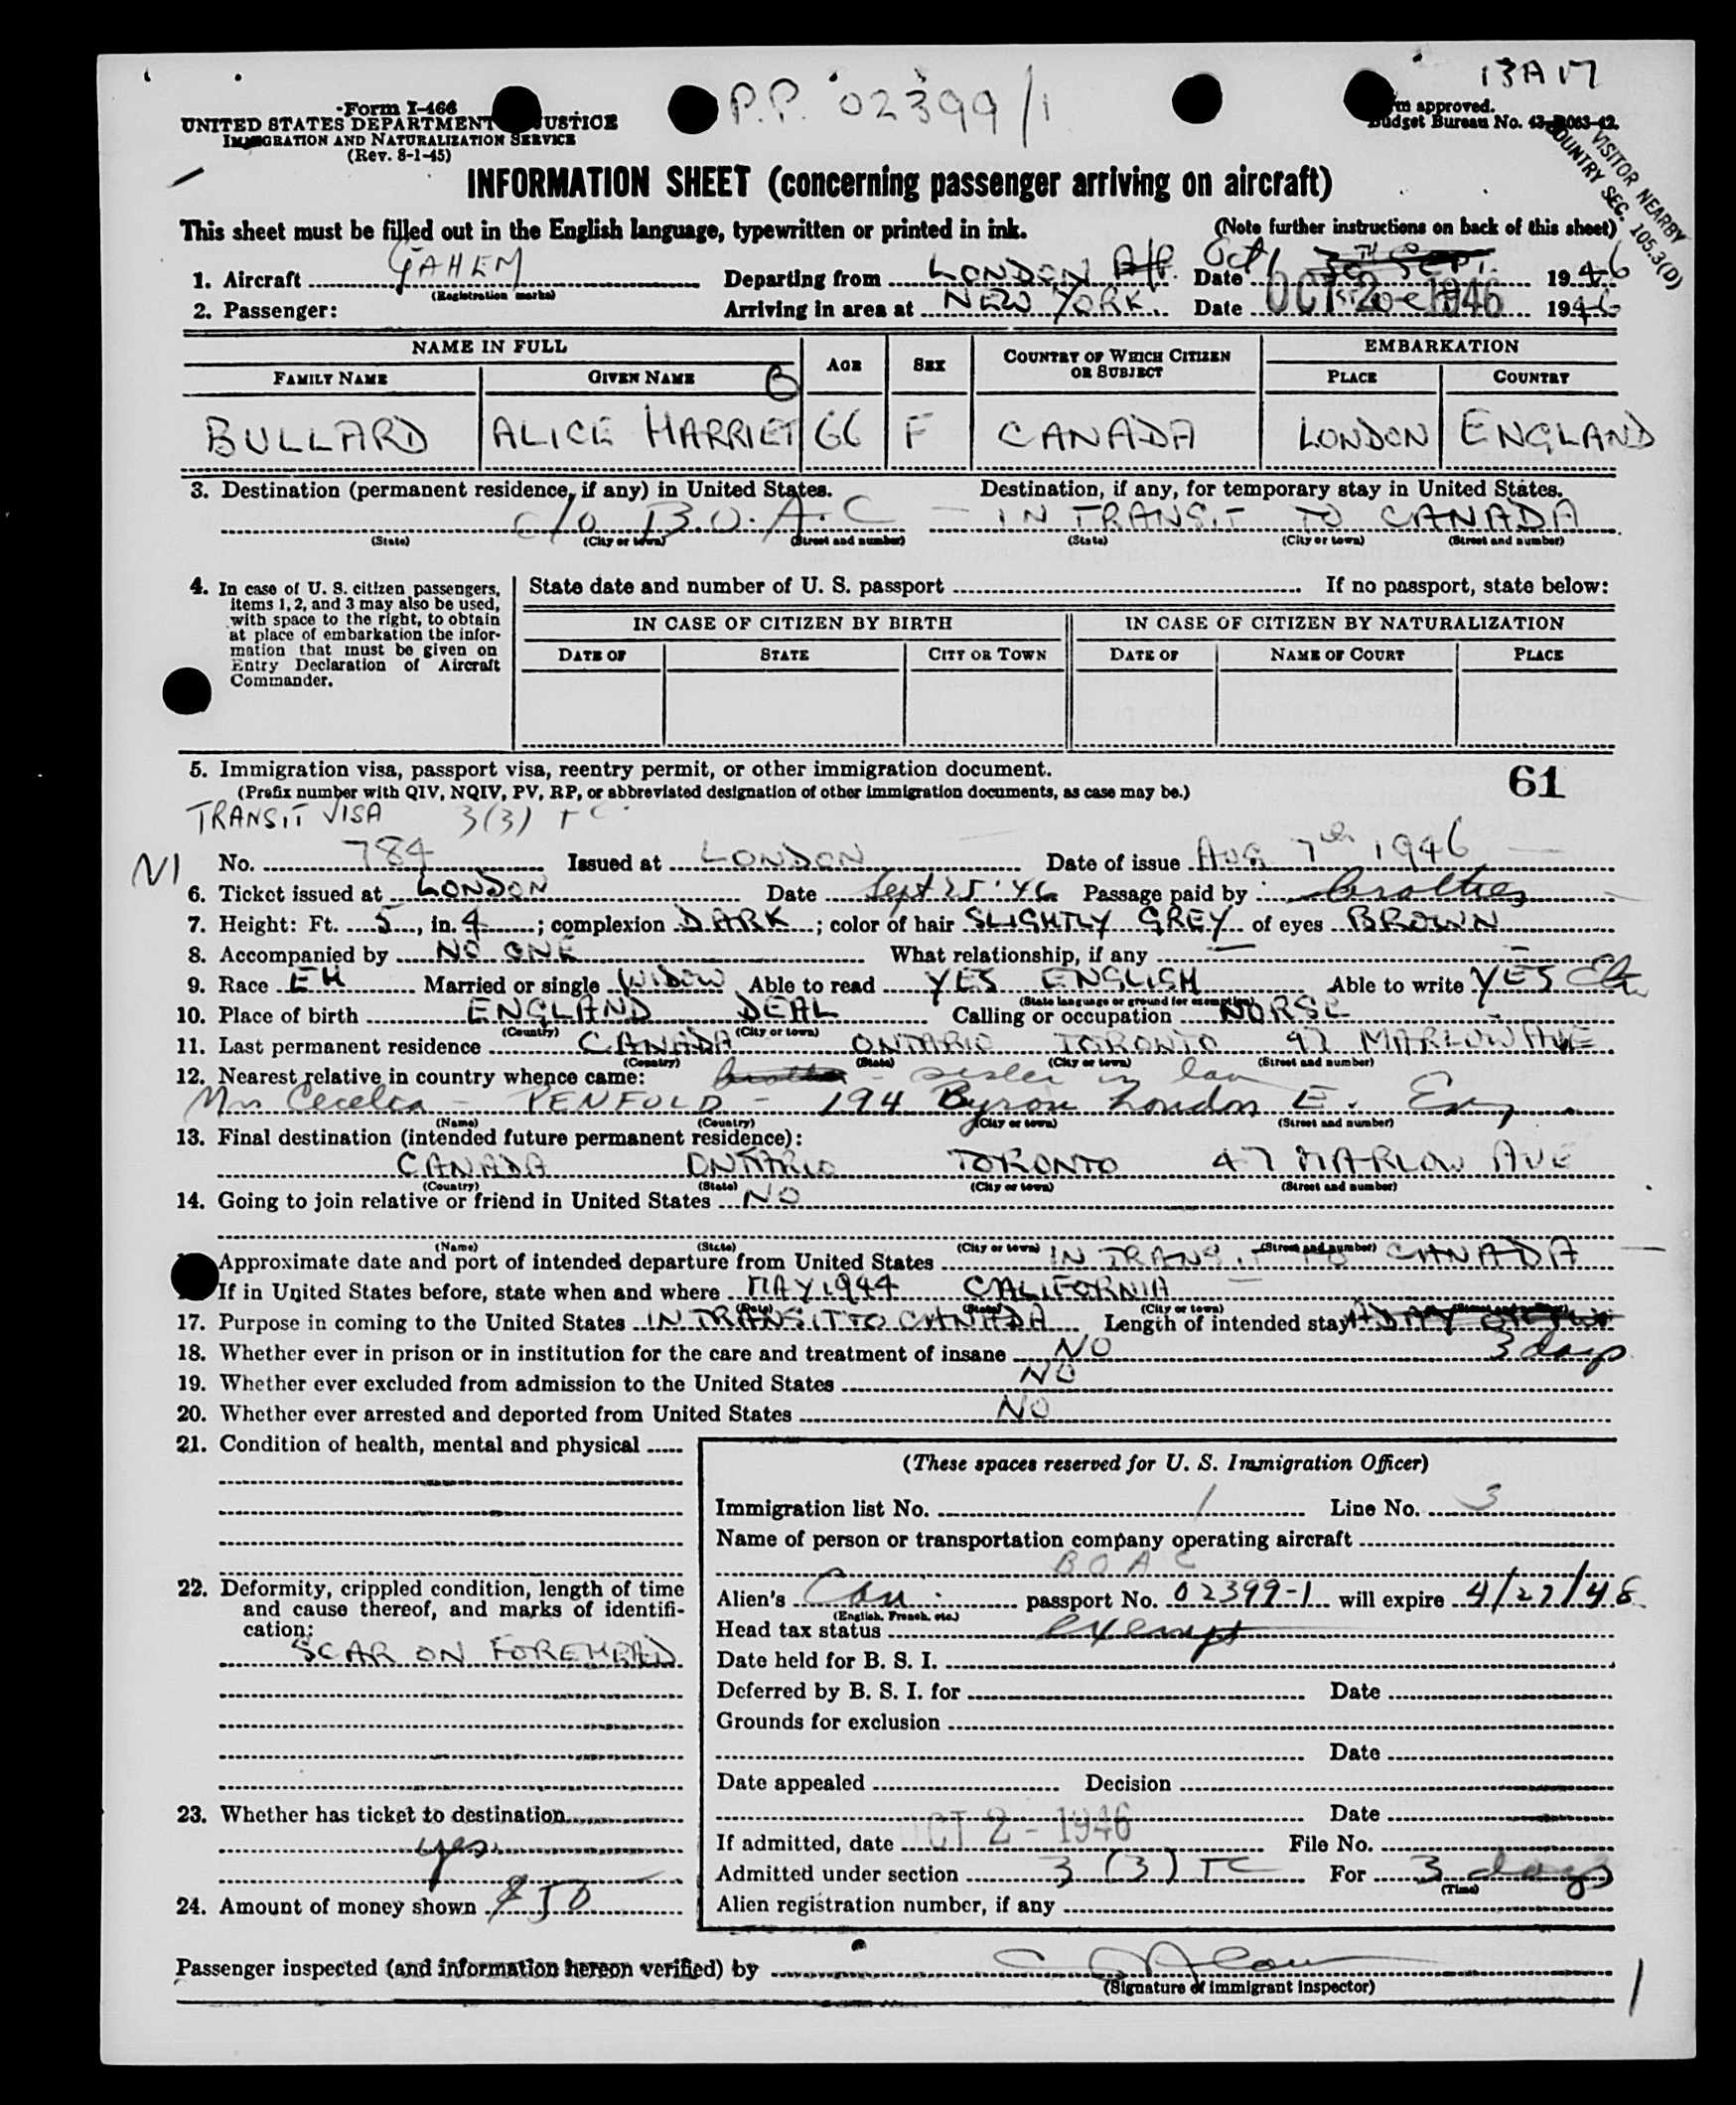 13A17
P.P. 02399/1
Form I-466
UNITED STATES DEPARTMENT JUSTICE
IMMIGRATION AND NATURALIZATION SERVICE
(Rev. 8-1-45)
approved.
Budget Bureau No.
VISITOR NEARBY
COUNTRY SEC. 105.3(D)
INFORMATION SHEET (concerning passenger arriving on aircraft)
This sheet must be filled out in the English language, typewritten or printed in ink. (Note further instructions on back of this sheet)
1. Aircraft GAHEM Departing from LONDON Date Oct 1 30TH SEPT 1946
(Registration marks)
2. Passenger: Arriving in area at NEW YORK. Date OCT 2 - 1946 1946
NAME IN FULL AGE SEX COUNTRY OF WHICH CITIZEN OR SUBJECT EMBARKATION
FAMILY NAME GIVEN NAME B PLACE COUNTRY
BULLARD ALICE HARRIET 66 F CANADA LONDON ENGLAND
3. Destination (permanent residence, if any) in United States. Destination, if any, for temporary stay in United States.
c/o B.O.A.C - IN TRANSIT TO CANADA
(State) (City or town) (Street and number) (State) (City or town) (Street and number)
4. In case of U. S. citizen passengers, items 1, 2, and 3 may also be used, with space to the right, to obtain at place of embarkation the information that must be given on Entry Declaration of Aircraft Commander.
State date and number of U. S. passport If no passport, state below:
IN CASE OF CITIZEN BY BIRTH IN CASE OF CITIZEN BY NATURALIZATION
DATE OF STATE CITY OR TOWN DATE OF NAME OF COURT PLACE
5. Immigration visa, passport visa, reentry permit, or other immigration document. 61
(Prefix number with QIV, NQIV, PV, RP, or abbreviated designation of other immigration documents, as case may be.)
TRANSIT VISA 3(3) TC
NI No. 784 Issued at LONDON Date of issue AUG 7th 1946
6. Ticket issued at LONDON Date Sept 25 '46 Passage paid by
7. Height: Ft. 5, in. 4; complexion DARK; color of hair SLIGHTLY GREY of eyes BROWN
8. Accompanied by NO ONE What relationship, if any —
9. Race EH Married or single WIDOW Able to read YES ENGLISH Able to write YES
(State language or ground for exemption)
10. Place of birth ENGLAND DEAL Calling or occupation NORSE
(Country) (City or town)
11. Last permanent residence CANADA ONTARIO TORONTO 47 MARLOW AVE
(Country) (State) (City or town) (Street and number)
12. Nearest relative in country whence came: brother - sister in law
Mrs Cecelia - PENFOLD - 194 Byron London E. Eng
(Name) (Country) (City or town) (Street and number)
13. Final destination (intended future permanent residence):
CANADA ONTARIO TORONTO 47 MARLOW AVE
(Country) (State) (City or town) (Street and number)
14. Going to join relative or friend in United States NO
(Name) (State) (City or town) (Street and number)
Approximate date and port of intended departure from United States IN TRANSIT TO CANADA
If in United States before, state when and where MAY 1944 CALIFORNIA
(Date) (State) (City or town) (Street and number)
17. Purpose in coming to the United States IN TRANSIT TO CANADA Length of intended stay
18. Whether ever in prison or in institution for the care and treatment of insane NO 3 days
19. Whether ever excluded from admission to the United States NO
20. Whether ever arrested and deported from United States NO
21. Condition of health, mental and physical
22. Deformity, crippled condition, length of time and cause thereof, and marks of identification:
SCAR ON FOREHEAD
23. Whether has ticket to destination
yes
24. Amount of money shown $50
(These spaces reserved for U. S. Immigration Officer)
Immigration list No. 1 Line No. 3
Name of person or transportation company operating aircraft
BOAC
Alien's Can. passport No. 02399-1 will expire 4/27/48
(English, French, etc.)
Head tax status exempt
Date held for B. S. I.
Deferred by B. S. I. for Date
Grounds for exclusion
Date
Date appealed Decision
Date
If admitted, date OCT 2 - 1946 File No.
Admitted under section 3 (3) TC For 3 days
(Time)
Alien registration number, if any
Passenger inspected (and information hereon verified) by
(Signature of immigrant inspector)